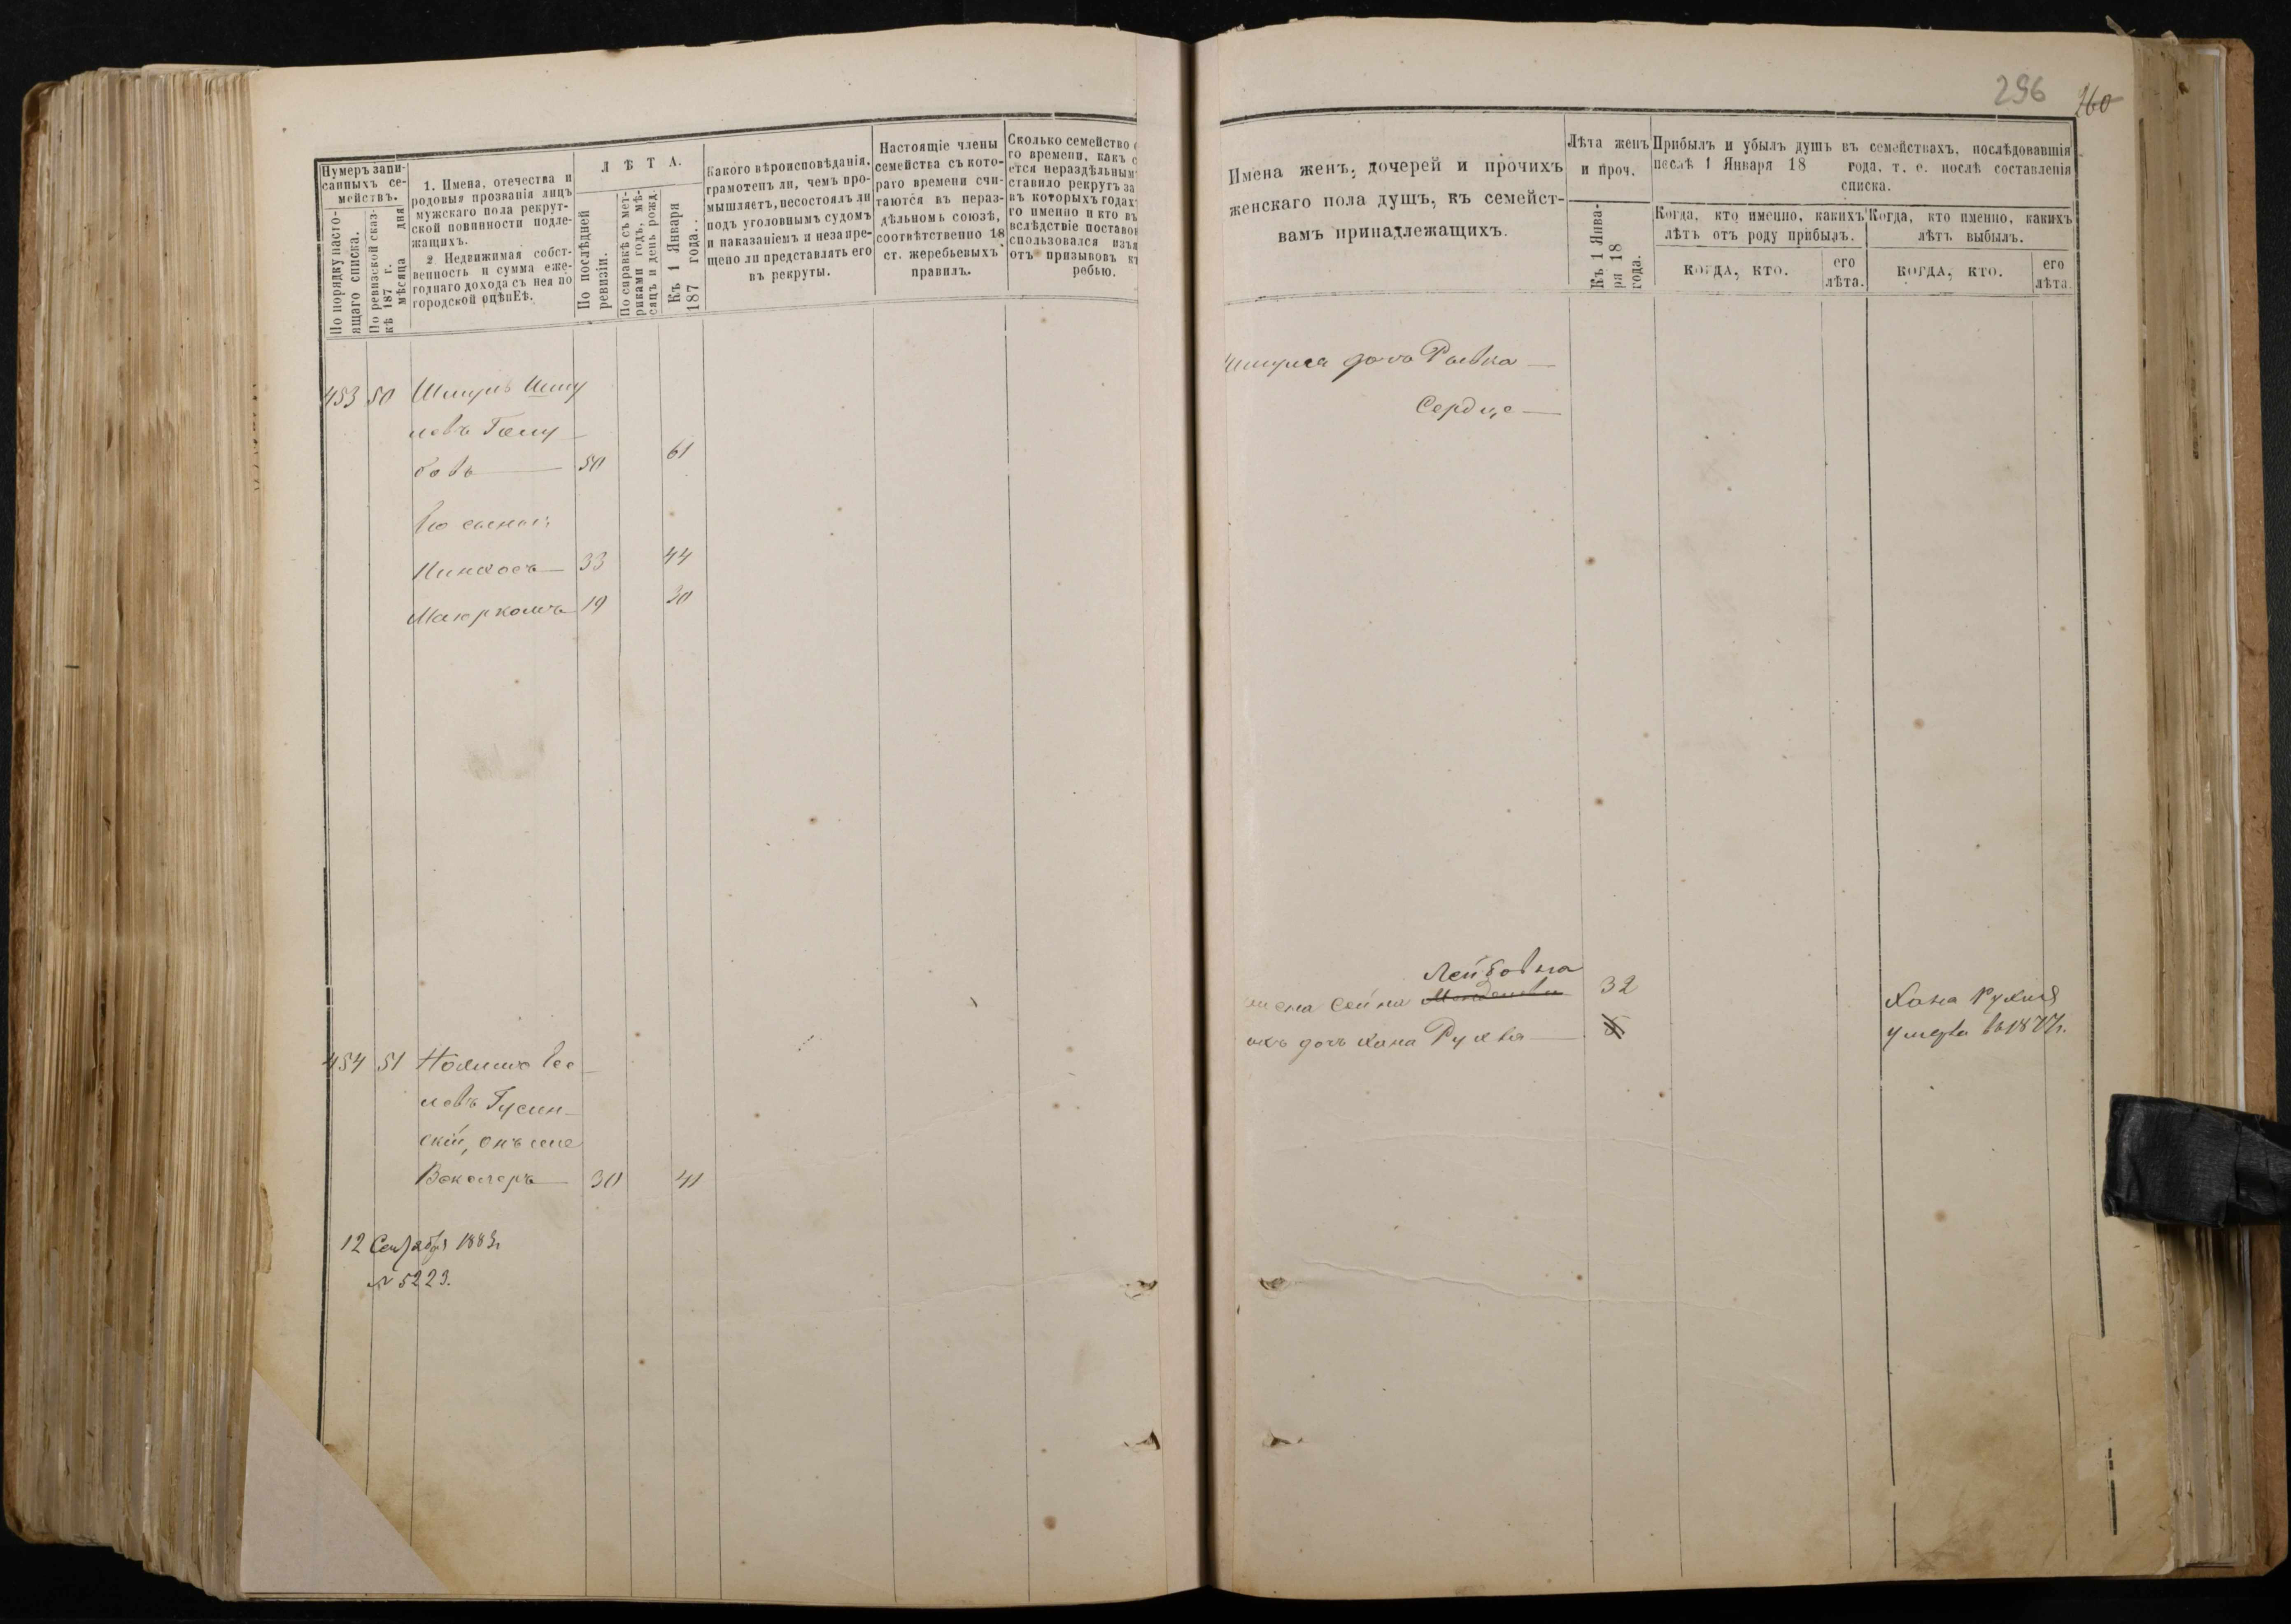 Нумеръ запи-
санныхъ се-
мействъ.
По порядку насто-
ящаго списка.
По ревизской сказ-
кѣ 187 г.
мѣсяца дня
1. Имена, отечества и
родовыя прозванія лицъ
мужскаго пола рекрут-
ской повинности подле-
жащихъ.
2. Недвижимая собст-
венность и сумма еже-
годнаго дохода съ нея по
городской оцѣнЕѣ.
ЛѢТА.
По послѣдней
ревизіи.
По справкѣ съ мет-
риками годъ, мѣ-
сяцъ и день рожд.
Къ 1 Января
187 года.
Какого вѣроисповѣданія,
грамотенъ ли, чемъ про-
мышляетъ, несостоялъ ли
подъ уголовнымъ судомъ
и наказаніемъ и незапре-
щено ли представлять его
въ рекруты.
Настоящіе члены
семейства съ кото-
раго времени счи-
таются въ нераз-
дѣльномъ союзѣ,
соотвѣтственно 18
ст. жеребьевыхъ
правилъ.
Сколько семейство
го времени, какъ с
ется нераздѣльным
ставило рекрутъ за
въ которыхъ годах
го именно и кто въ
вслѣдствіе поставо
спользовался изъя
отъ призывовъ къ
ребью.
453 50
новъ
бовъ 50 61
Его сыновья:
Пинхосъ 33 44
19 30
454 51
левъ Гусин-
скій, онъ же
30 41
12 Сентября 1883 г
№ 5223.
296 260
Имена женъ, дочерей и прочихъ
женскаго пола душъ, къ семейст-
вамъ принадлежащихъ.
Лѣта женъ
и проч.
Къ 1 Янва-
ря 18
года.
Прибылъ и убылъ душъ въ семействахъ, послѣдовавшія
послѣ 1 Января 18 года, т. е. послѣ составленія
списка.
Когда, кто именно, какихъ
лѣтъ отъ роду прибылъ.
КОГДА, КТО.
его
лѣта.
Когда, кто именно, какихъ
лѣтъ выбылъ.
КОГДА, КТО.
его
лѣта.
дочь Ривка
Сердце
Лейбовна
жена Сейна 32
дочь Хана Рухля 5
Хана Рухля
умерла въ 1877 г.